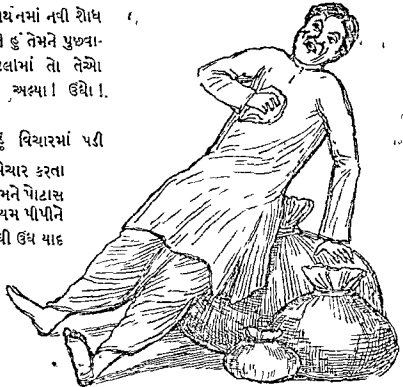 ર્થનમાં નવી શોધ
હું તેમને પુછવા-
લામાં તો તેઓ
અલ્યા! ઉંઘો!.
વિચારમાં પડી
વિચાર કરતા
મને પોટાસ
યમ પીપીને
ઉંઘ યાદ